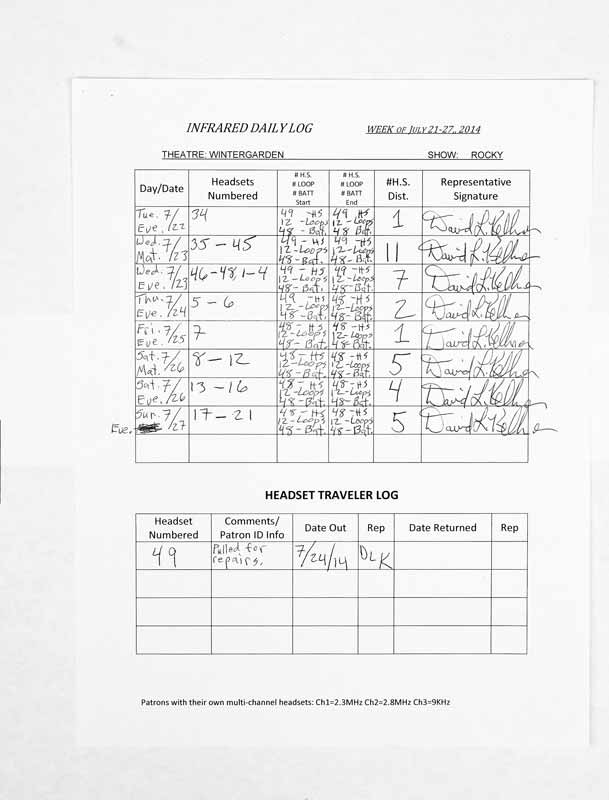 INFRARED DAILY LOG WEEK OF JULY 21-27, 2014
THEATRE: WINTERGARDEN SHOW: ROCKY
Day/Date Headsets Numbered # H.S. # LOOP # BATT Start # H.S. # LOOP # BATT End #H.S. Dist. Representative Signature
Tue. 7/22 Eve. 34 49 -HS 12 -Loops 48 -Bat. 49 HS 12 -Loops 48 Bat. 1 David L. Kelher
Wed. 7/23 Mat. 35 - 45 49 - HS 12-Loops 48-Bat. 49 -HS 12-Loops 48-Bat. 11 David L. Kelher
Wed. 7/23 Eve. 46-48, 1-4 49 - HS 12-Loops 48-Bat. 49 -HS 12-Loops 48-Bat. 7 David L. Kelher
Thu. 7/24 Eve. 5 - 6 49 -HS 12-Loops 48-Bat. 48 -HS 12-Loops 48-Bat. 2 David L. Kelher
Fri. 7/25 Eve. 7 48-HS 12-Loops 48-Bat. 48-HS 12-Loops 48-Bat. 1 David L. Kelher
Sat. 7/26 Mat. 8 - 12 48-HS 12-Loops 48-Bat. 48-HS 12-Loops 48-Bat. 5 David L. Kelher
Sat. 7/26 Eve. 13 - 16 48-HS 12-Loops 48-Bat. 48-HS 12-Loops 48-Bat. 4 David L. Kelher
Sun. 7/27 Eve. 17 - 21 48-HS 12-Loops 48-Bat. 48-HS 12-Loops 48-Bat. 5 David L. Kelher
HEADSET TRAVELER LOG
Headset Numbered Comments/ Patron ID Info Date Out Rep Date Returned Rep
49 Pulled for repairs. 7/24/14 DLK
Patrons with their own multi-channel headsets: Ch1=2.3MHz Ch2=2.8MHz Ch3=9KHz